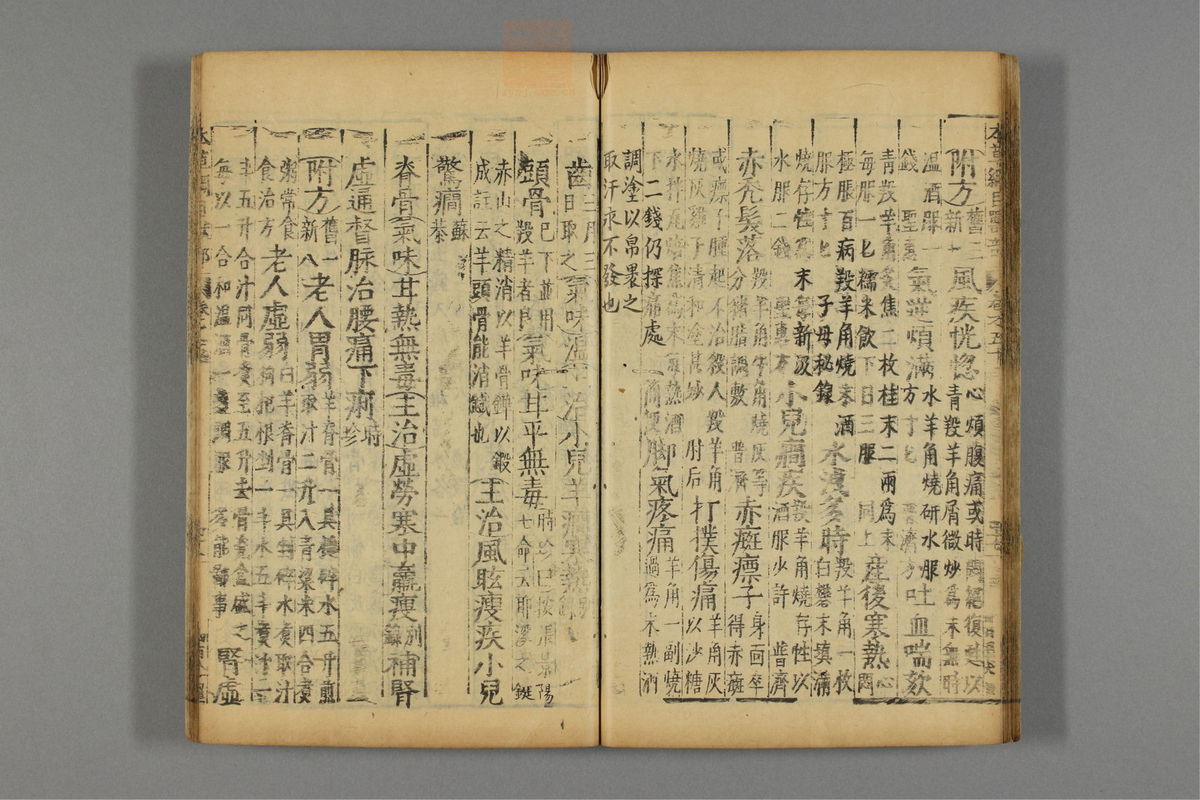 附方舊二新七風疾恍惚心煩腹痛或時悶絕復甦以青羖羊角屑微炒爲末無時
溫酒服一錢 聖惠氣逆煩滿水羊角燒研水服方寸匕 普濟方吐血喘欬
青羖羊角炙焦二枚桂末二兩爲末每服一匕糯米飲下日三服 同上產後寒熱心悶
極脹百病羖羊角燒末酒服方寸匕 子母秘錄水瀉多時羖羊角一枚白礬末填滿
燒存性爲末每新汲水服二錢 聖惠方小兒癇疾羖羊角燒存性以酒服少許 普濟
赤禿髮落羖羊角牛角燒灰等分猪脂調敷 普濟赤癍瘭子身面卒得赤斑
或瘭子腫起不治殺人羖羊角燒灰雞子清和塗甚妙 肘后打撲傷痛羊角灰以沙糖
水拌瓦焙焦爲末每熱酒下二錢仍揉痛處 簡便脚氣疼痛羊角一副燒過爲末熱酒
調塗以帛裹之取汗永不發也
齒三月三日取之氣味溫主治小兒羊癇寒熱別錄
頭骨已下並用羖羊者良氣味甘平無毒時珍曰按張景陽七命云耶溪之鋌
赤山之精消以羊骨鏷以鍛成註云羊頭骨能消鐵也主治風眩瘦疾小兒
驚癇蘇恭
脊骨氣味甘熱無毒主治虛勞寒中羸瘦別錄補腎
虛通督脉治腰痛下痢時珍
附方舊一新八老人胃弱羊脊骨一具搥碎水五升煎取汁二升入青粱米四合煑
粥常食食治方老人虛弱白羊脊骨一具剉碎水煑取汁枸杞根剉一斗水五斗煑汁一
斗五升合汁同骨煑至五升去骨瓷盒盛之
每以一合和溫酒一盞調服腎虛